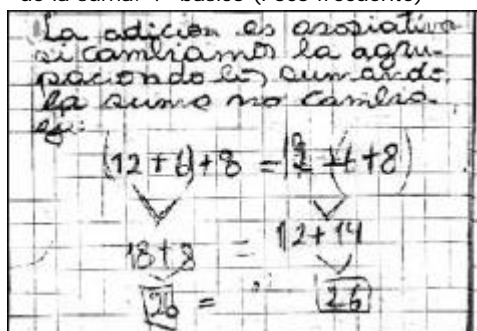 de la suma. 4° básico (Poco frecuente)
La adición es asosiativa
si cambiamos la agru-
paciondo los sumando.
la suma no cambia.
ej:
(12 + 6) + 8 = 12 + (6 + 8)
18 + 8 = 12 + 14
26 = 26